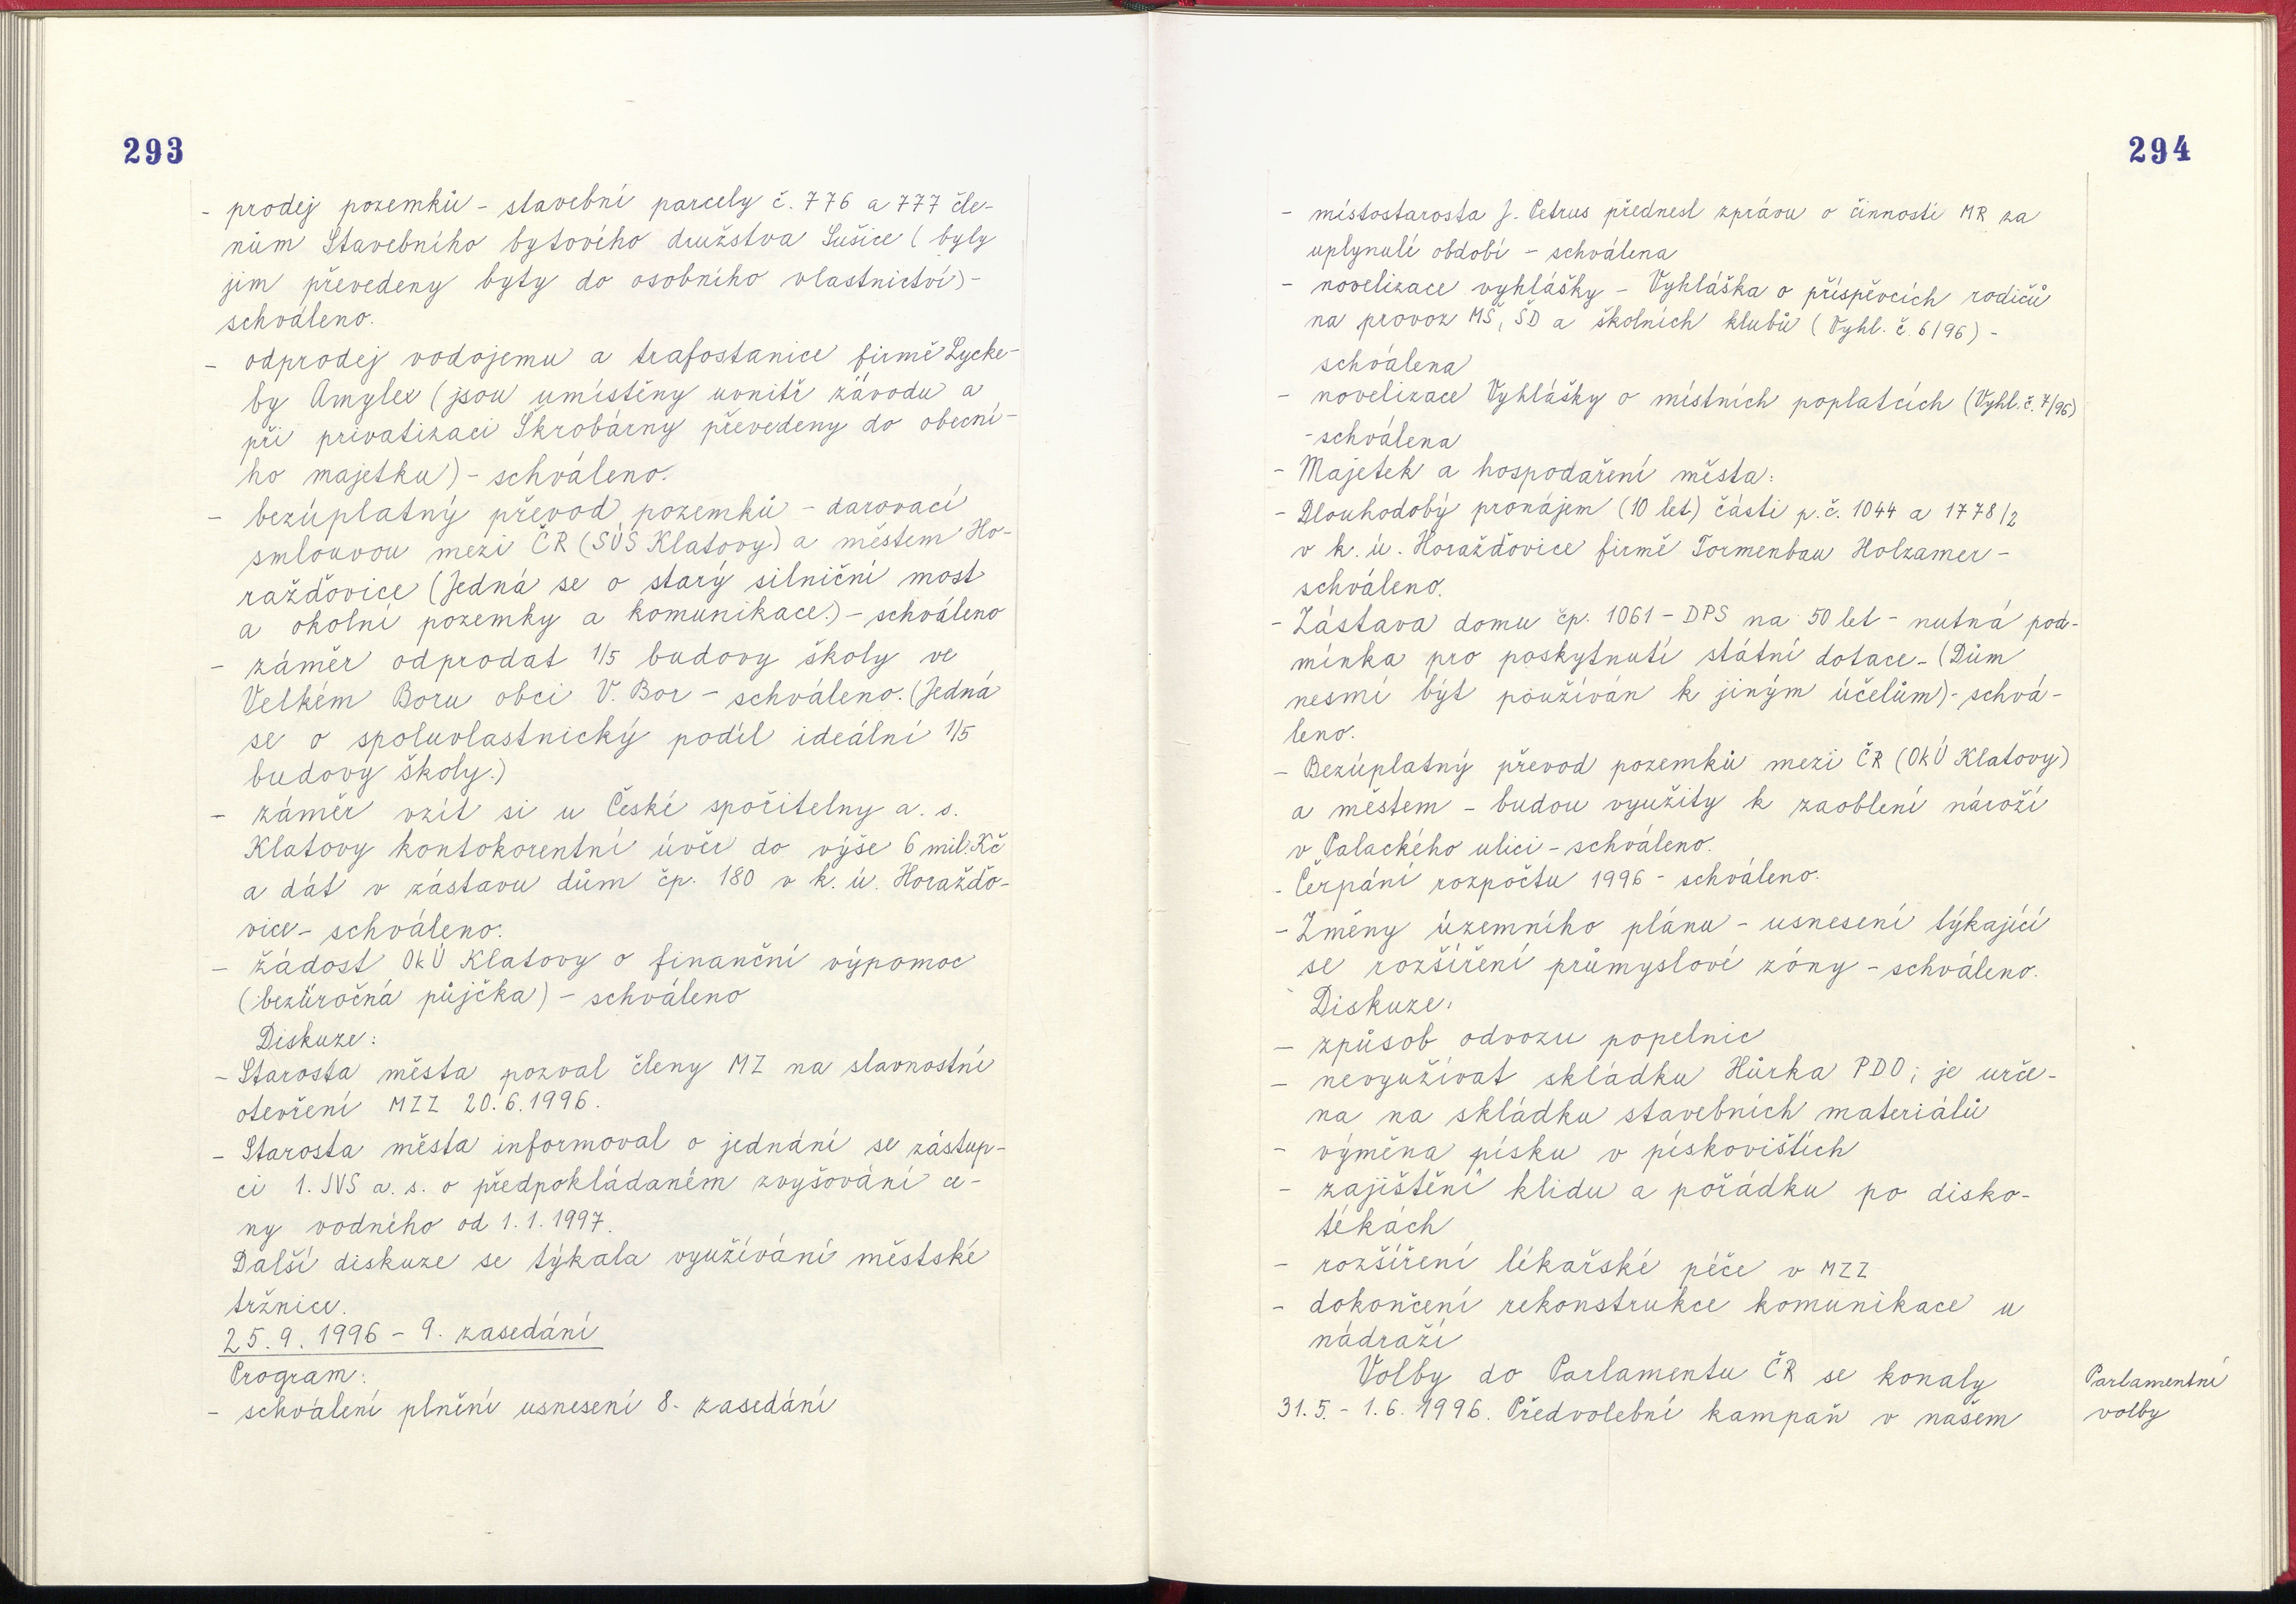 293
- prodej pozemků - stavební parcely č. 776 a 777 čle-
nům Stavebního bytového družstva Sušice ( byly
jim převedeny byty do osobního vlastnictví) -
schváleno.
- odprodej vodojemu a trafostanice firmě Lycke-
by Amylex (jsou umístěny uvnitř závodu a
při privatizaci Škrobárny převedeny do obecní-
ho majetku) - schváleno.
- bezúplatný převod pozemků - darovací
smlouvou mezi ČR (SÚS Klatovy) a městem Ho-
ražďovice (Jedná se o starý silniční most
a okolní pozemky a komunikace.) - schváleno
- záměr odprodat 1/5 budovy školy ve
Velkém Boru obci V. Bor - schváleno. (Jedná
se o spoluvlastnický podíl ideální 1/5
budovy školy.)
- záměr vzít si u České spořitelny a. s.
Klatovy kontokorentní úvěr do výše 6 mil. Kč
a dát v zástavu dům čp. 180 v k. ú. Horažďo-
vice - schváleno.
- žádost OkÚ Klatovy o finanční výpomoc
(bezúročná půjčka) - schváleno
Diskuze:
- Starosta města pozval členy MZ na slavnostní
otevření MZZ 20.6.1996.
- Starosta města informoval o jednání se zástup-
ci 1. JVS a. s. o předpokládaném zvyšování ce-
ny vodného od 1.1.1997.
Další diskuze se týkala využívání městské
tržnice.
25.9.1996 - 9. zasedání
Program:
- schválení plnění usnesení 8. zasedání
294
- místostarosta J. Petrus přednesl zprávu o činnosti MR za
uplynulé období - schválena
- novelizace vyhlášky - Vyhláška o příspěvcích rodičů
na provoz MŠ, ŠD a školních klubů ( Vyhl. č. 6/96) -
schválena
- novelizace Vyhlášky o místních poplatcích (Vyhl. č. 7/96)
- schválena
- Majetek a hospodaření města:
- Dlouhodobý pronájem (10 let) části p. č. 1044 a 1778/2
v k. ú. Horažďovice firmě Tormenbau Holzamer -
schváleno.
- Zástava domu čp. 1061 - DPS na 50 let - nutná pod-
mínka pro poskytnutí státní dotace - (Dům
nesmí být používán k jiným účelům) - schvá-
leno.
- Bezúplatný převod pozemků mezi ČR (OkÚ Klatovy)
a městem - budou využity k zaoblení nároží
v Palackého ulici - schváleno.
- Čerpání rozpočtu 1996 - schváleno.
- Změny územního plánu - usnesení týkající
se rozšíření průmyslové zóny - schváleno.
Diskuze:
- způsob odvozu popelnic
- nevyužívat skládku Hůrka PDO; je urče-
na na skládku stavebních materiálů
- výměna písku v pískovištích
- zajištění klidu a pořádku po disko-
tékách
- rozšíření lékařské péče v MZZ
- dokončení rekonstrukce komunikace u
nádraží
Volby do Parlamentu ČR se konaly
31. 5. - 1. 6. 1996. Předvolební kampaň v našem
Parlamentní
volby